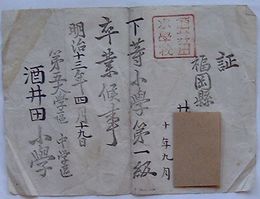 証
福岡縣
井
十年九月
下等小學第一級
卒業候事
明治十三年四月十九日
第五大学區 中学區
酒井田小學
酒井田
小學校